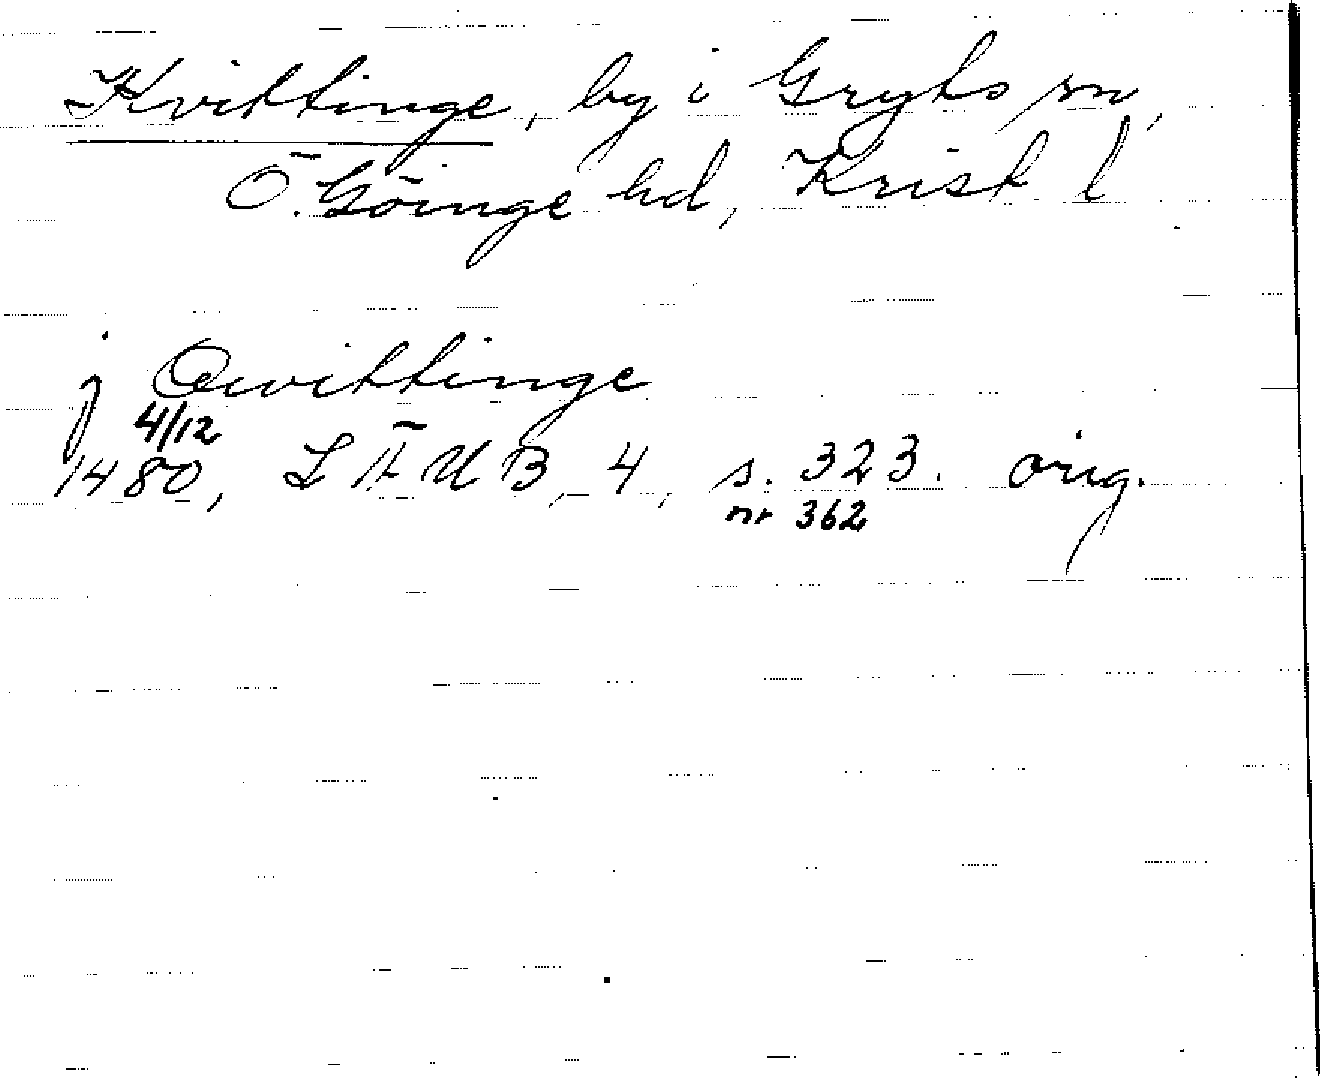 Kvittinge, by i Gryts sn,
Ö. Göinge hd, Krist l
j Qwittinge
4/12
1480, LÄUB, 4, s. 323. orig.
nr 362